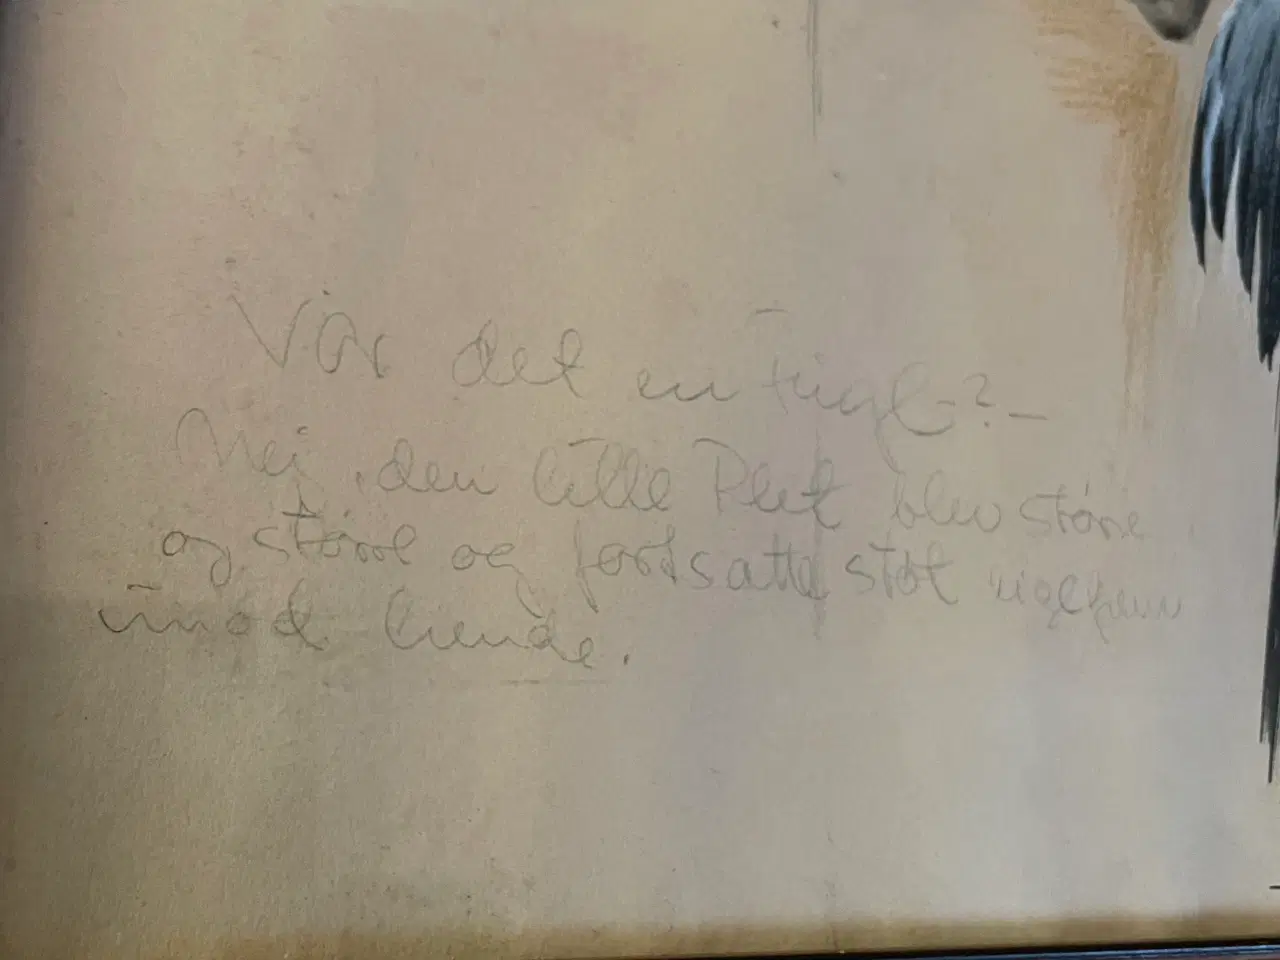 Var det en Fugl? –
Nej, den lille Plet blev større
og større og fortsatte støt
imod hende.